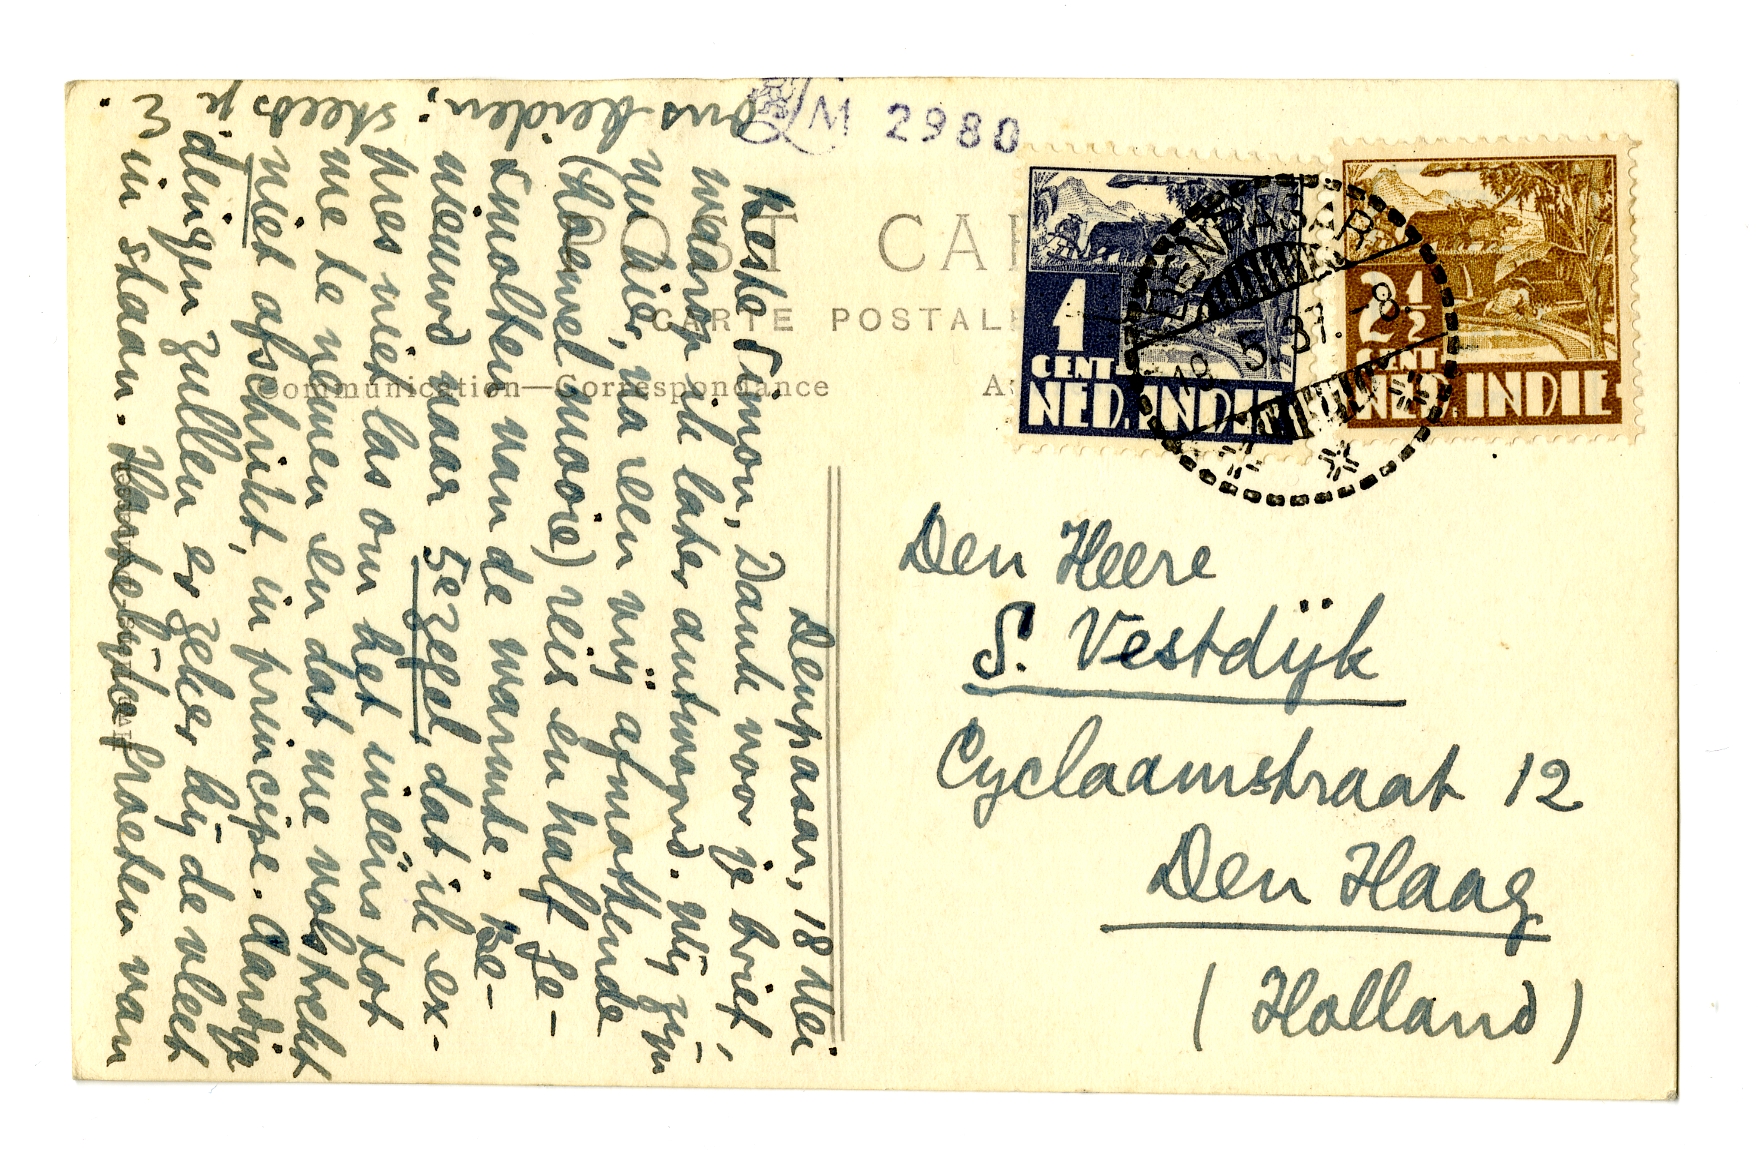 LM 2980
POST CAR
CARTE POSTALE
Communication—Correspondance
DENPASAR
18.5.37.-8
1
CENT
NED. INDIE
2½
CENT
NED. INDIE
Denpasar, 18 Mei
Beste Simon, Dank voor je brief,
waarop ik later antwoord. Wij zijn
nu hier, na een vrij afmattende
(hoewel mooie) reis en half ge-
smolten van de warmte. Be-
nieuwd naar 5e zegel, dat ik ex-
pres niet las om het ineens tot
me te nemen en dat me volstrekt
niet afschrikt, in principe. Aardige
dingen zullen er zeker bij de vleet
in staan. Hartelijke groeten van
ons beiden; steeds je
E.
Den Heere
S. Vestdijk
Cyclaamstraat 12
Den Haag
(Holland)